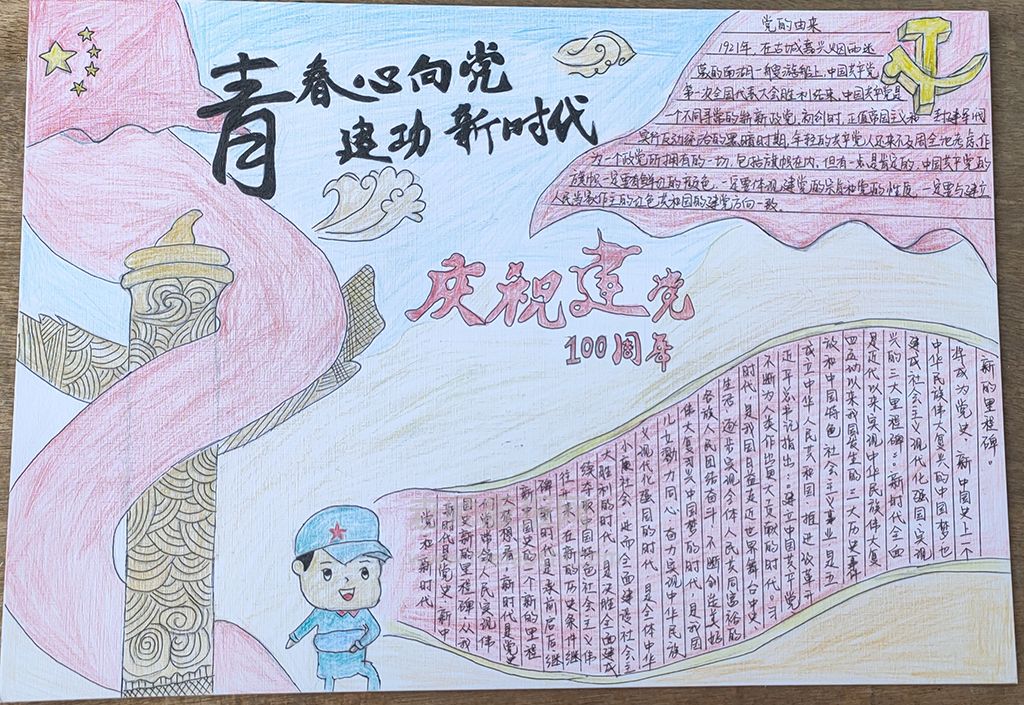 青春心向党
建功新时代
党的由来
1921年,在古城嘉兴烟雨迷
蒙的南湖一艘游船上,中国共产党
第一次全国代表大会胜利结束,中国共产党是
一个不同寻常的崭新政党,初创时,正值帝国主义和 封建军阀
实行反动统治的黑暗时期,年轻的共产党人还来不及周全地考虑,作
为一个政党所拥有的一切,包括旗帜在内,但有一点是肯定的,中国共产党的
旗帜一定要有鲜明的颜色,一定要体现建党的宗旨和党的性质,一定要与建立
人民当家作主的红色共和国的建党方向一致
庆祝建党
100周年
党和新时代
新时代是党史、新中
国史新的里程碑。从我
们党带领人民实现伟
大梦想看,新时代是党史
新中国史的一个新的里程
碑。新时代是承前启后继
往开来、在新的历史条件继
续夺取中国特色社会主义伟
大胜利的时代,是决胜全面建成
小康社会、进而全面建造社会主
义现代化强国的时代,是全体中华
儿女勠力同心、奋力实现中华民族
伟大复兴中国梦的时代,是我国
各族人民团结奋斗、不断创造美好
生活、逐步实现全体人民共同富裕的
时代,是我国日益走近世界舞台中央
不断为人类作出更大贡献的时代。习
近平总书记指出:“建立中国共产党
成立中华人民共和国、推进改革开
放和中国特色社会主义事业,是五
四运动以来我国发生的三大历史事件
是近代以来实现中华民族伟大复
兴的三大里程碑。”新时代全面
建成社会主义现代化强国、实现
中华民族伟大复兴的中国梦也
将成为党史、新中国史上一个
新的里程碑。